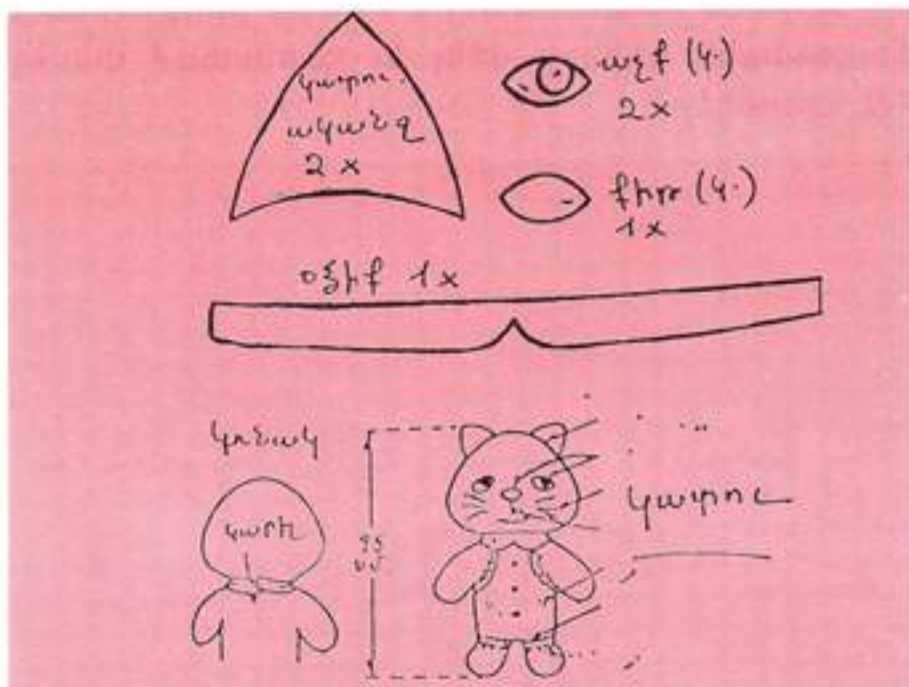 կատու.
ականջ
2 x
աչք (կ.)
2 x
քիթ (կ.)
1 x
օձիք 1 x
կռնակ
կատու